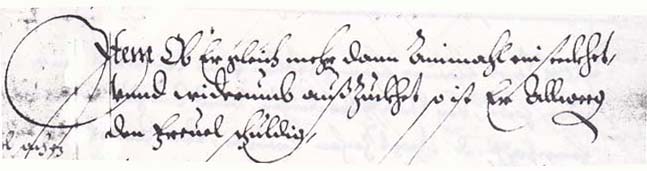 Item Ob Er gleich mehr dann Einmahl einstecket,
vnnd widerumb außzuckhet so ist Er Allweeg
den Freuel schuldig,